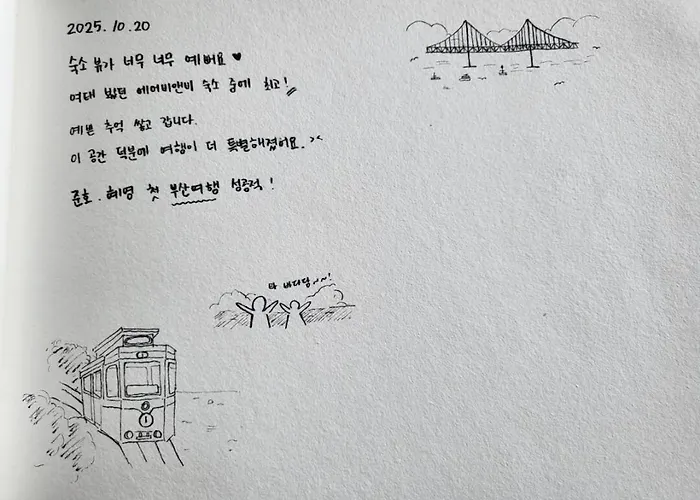 2025. 10. 20
숙소 뷰가 너무 너무 예뻐요 ♥
여태 봤던 에어비앤비 숙소 중에 최고!
예쁜 추억 쌓고 갑니다.
이 공간 덕분에 여행이 더 특별해졌어요. ><
준호. 혜영 첫 부산여행 성공적!
와 바다당~~!